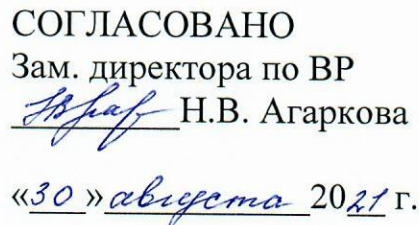 СОГЛАСОВАНО
Зам. директора по ВР
Н.В. Агаркова
«30» августа 2021 г.